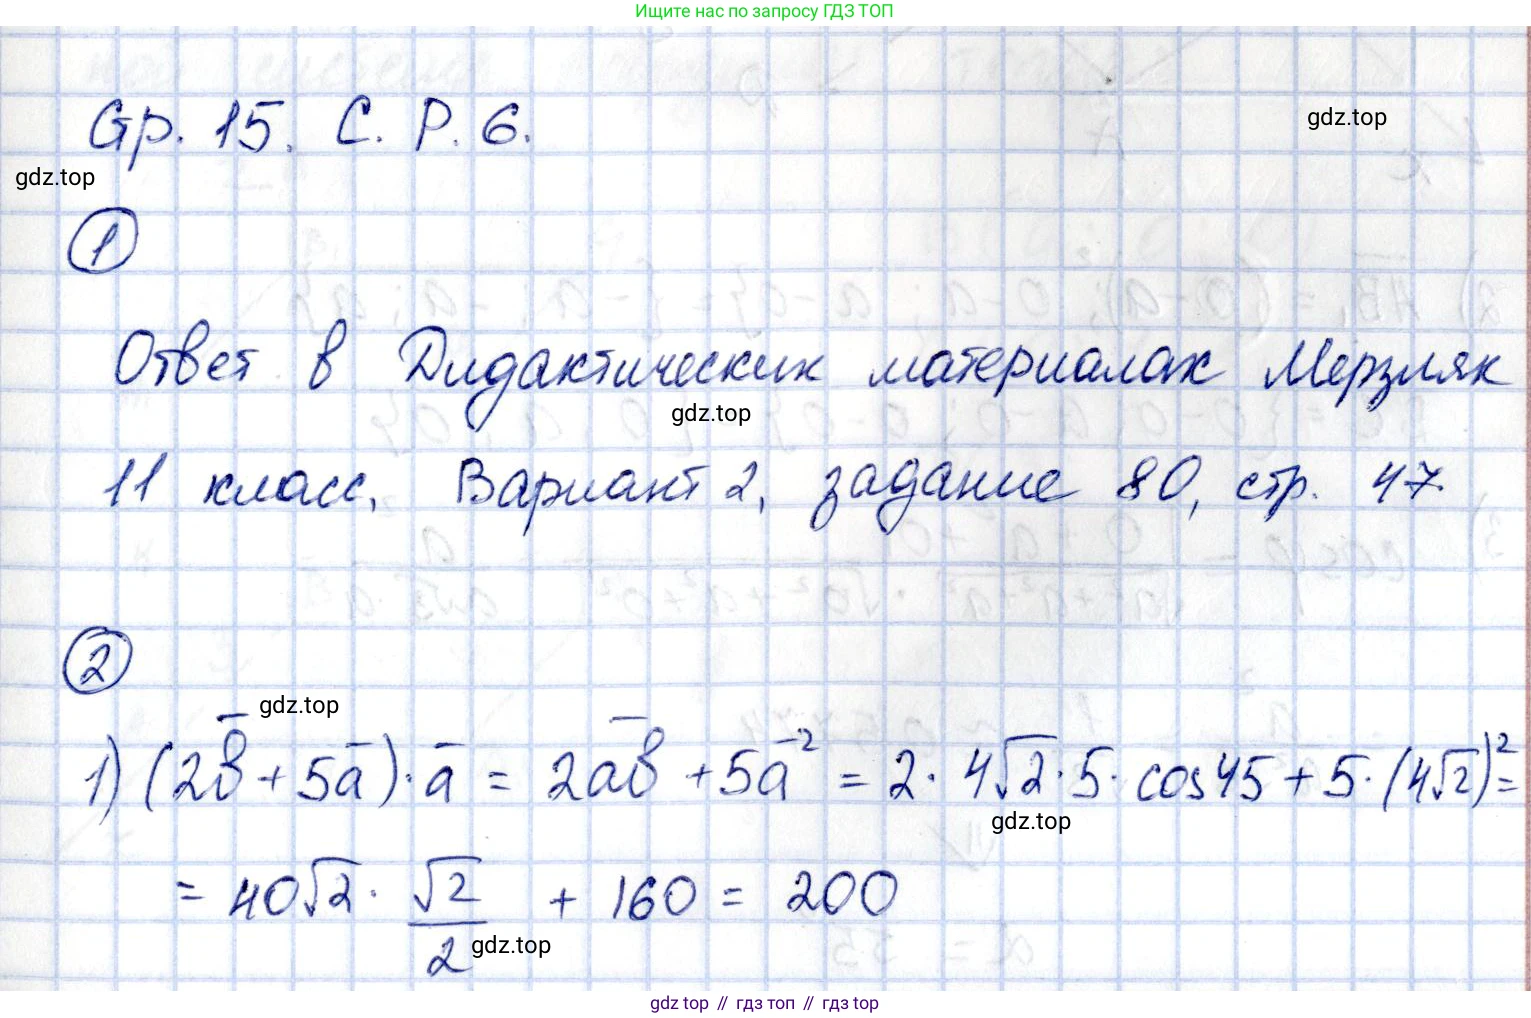 Ищите нас по запросу ГДЗ ТОП
Стр. 15. С. Р. 6.
gdz.top
gdz.top
1
Ответ в Дидактических материалах Мерзляк
gdz.top
11 класс, Вариант 2, задание 80, стр. 47.
2
gdz.top
1) (2b̅ + 5a̅)·a̅ = 2a̅b̅ + 5a̅² = 2·4√2·5·cos45 + 5·(4√2)² =
gdz.top
= 40√2 · √2/2 + 160 = 200
gdz.top
gdz top // гдз топ // gdz top